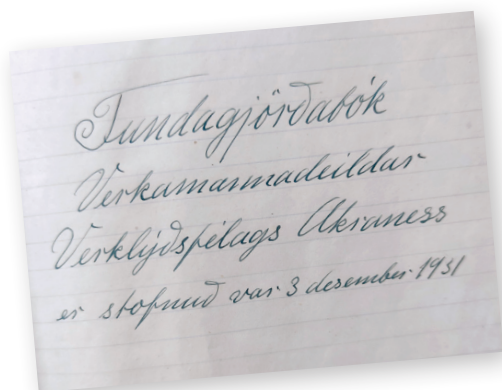 Fundagjörðabók
Verkamannadeildar
Verklýðsfélags Akraness
er stofnuð var 3 desember 1931